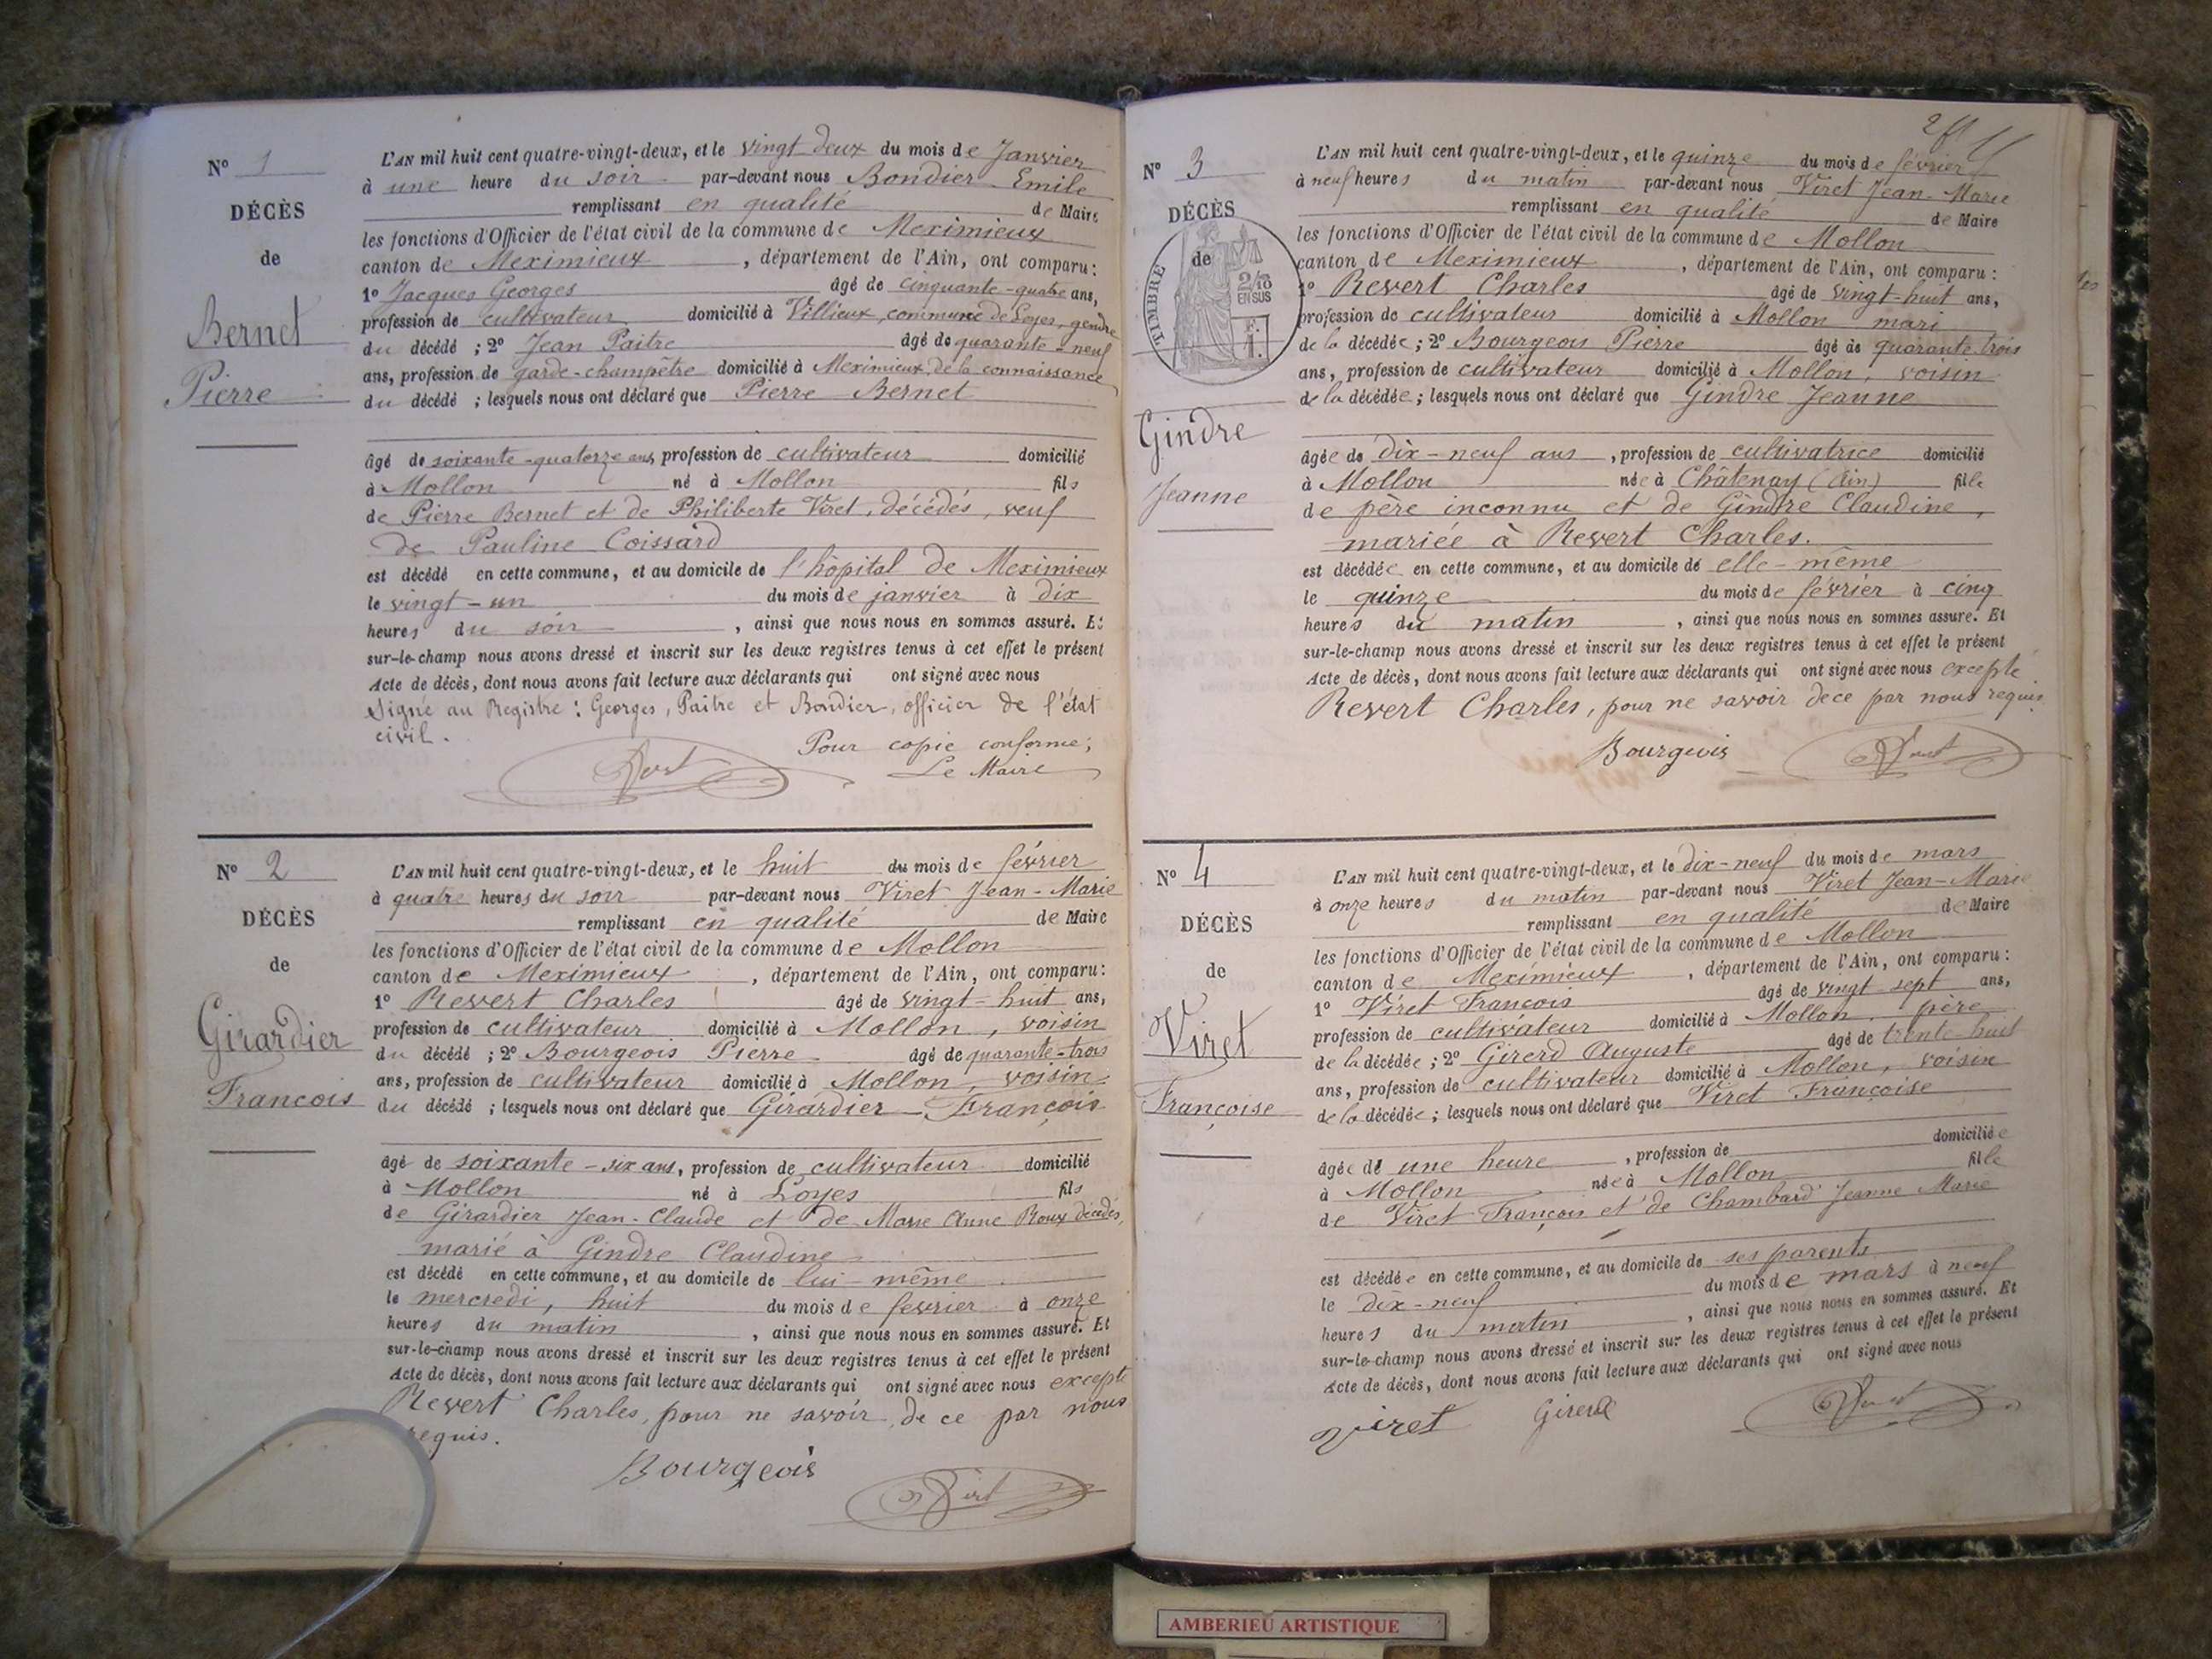 N° 1
DÉCÈS
de
Bernet
Pierre
L'AN mil huit cent quatre-vingt-deux, et le vingt deux du mois de Janvier
à une heure du soir par-devant nous Bondier Emile
remplissant en qualité de Maire
les fonctions d'Officier de l'état civil de la commune de Meximieux
canton de Meximieux, département de l'Ain, ont comparu:
1° Jacques Georges âgé de cinquante-quatre ans,
profession de cultivateur domicilié à Villieux, commune de Loyes, gendre
du décédé ; 2° Jean Paitre âgé de quarante-neuf
ans, profession de garde-champêtre domicilié à Meximieux, de la connaissance
du décédé ; lesquels nous ont déclaré que Pierre Bernet
âgé de soixante-quatorze ans, profession de cultivateur domicilié
à Mollon né à Mollon fils
de Pierre Bernet et de Philiberte Viret, décédés, veuf
de Pauline Coissard
est décédé en cette commune, et au domicile de l'hôpital de Meximieux
le vingt-un du mois de janvier à dix
heures du soir, ainsi que nous nous en sommes assuré. Et
sur-le-champ nous avons dressé et inscrit sur les deux registres tenus à cet effet le présent
Acte de décès, dont nous avons fait lecture aux déclarants qui ont signé avec nous
Signé au Registre : Georges, Paitre et Bondier, officier de l'état
civil.
Pour copie conforme,
Le Maire
N° 2
DÉCÈS
de
Girardier
François
L'AN mil huit cent quatre-vingt-deux, et le huit du mois de février
à quatre heures du soir par-devant nous Viret Jean-Marie
remplissant en qualité de Maire
les fonctions d'Officier de l'état civil de la commune de Mollon
canton de Meximieux, département de l'Ain, ont comparu:
1° Revert Charles âgé de vingt-huit ans,
profession de cultivateur domicilié à Mollon, voisin
du décédé ; 2° Bourgeois Pierre âgé de quarante-trois
ans, profession de cultivateur domicilié à Mollon, voisin
du décédé ; lesquels nous ont déclaré que Girardier François
âgé de soixante-six ans, profession de cultivateur domicilié
à Mollon né à Loyes fils
de Girardier Jean-Claude et de Marie Anne Roux décédés,
marié à Gindre Claudine
est décédé en cette commune, et au domicile de lui-même
le mercredi, huit du mois de fevrier à onze
heures du matin, ainsi que nous nous en sommes assuré. Et
sur-le-champ nous avons dressé et inscrit sur les deux registres tenus à cet effet le présent
Acte de décès, dont nous avons fait lecture aux déclarants qui ont signé avec nous excepté
Revert Charles, pour ne savoir, de ce par nous
requis.
Bourgeois
Viret
N° 3
DÉCÈS
de
TIMBRE
2/10
EN SUS
F.
1.
Gindre
Jeanne
L'AN mil huit cent quatre-vingt-deux, et le quinze du mois de février
à neuf heures du matin par-devant nous Viret Jean-Marie
remplissant en qualité de Maire
les fonctions d'Officier de l'état civil de la commune de Mollon
canton de Meximieux, département de l'Ain, ont comparu :
1° Revert Charles âgé de vingt-huit ans,
profession de cultivateur domicilié à Mollon mari
de la décédée ; 2° Bourgeois Pierre âgé de quarante trois
ans, profession de cultivateur domicilié à Mollon, voisin
de la décédée ; lesquels nous ont déclaré que Gindre Jeanne
âgée de dix-neuf ans, profession de cultivatrice domicilié
à Mollon née à Châtenay (Ain) fille
de père inconnu et de Gindre Claudine,
mariée à Revert Charles.
est décédée en cette commune, et au domicile de elle-même
le quinze du mois de février à cinq
heures du matin, ainsi que nous nous en sommes assuré. Et
sur-le-champ nous avons dressé et inscrit sur les deux registres tenus à cet effet le présent
Acte de décès, dont nous avons fait lecture aux déclarants qui ont signé avec nous excepté
Revert Charles, pour ne savoir de ce par nous requis
Bourgeois
Viret
N° 4
DÉCÈS
de
Viret
Françoise
L'AN mil huit cent quatre-vingt-deux, et le dix-neuf du mois de mars
à onze heures du matin par-devant nous Viret Jean-Marie
remplissant en qualité de Maire
les fonctions d'Officier de l'état civil de la commune de Mollon
canton de Meximieux, département de l'Ain, ont comparu :
1° Viret François âgé de vingt-sept ans,
profession de cultivateur domicilié à Mollon, père
de la décédée ; 2° Girerd Auguste âgé de trente-huit
ans, profession de cultivateur domicilié à Mollon, voisin
de la décédée ; lesquels nous ont déclaré que Viret Françoise
âgée de une heure, profession de domiciliée
à Mollon née à Mollon fille
de Viret François et de Chambard Jeanne Marie
est décédée en cette commune, et au domicile de ses parents
le dix-neuf du mois de mars à neuf
heures du matin, ainsi que nous nous en sommes assuré. Et
sur-le-champ nous avons dressé et inscrit sur les deux registres tenus à cet effet le présent
Acte de décès, dont nous avons fait lecture aux déclarants qui ont signé avec nous
Viret Girerd Viret
AMBERIEU ARTISTIQUE